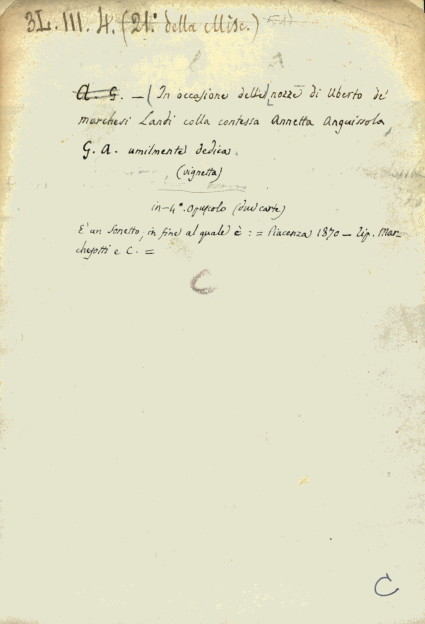 3L. III. 4. (21.ª della Misc.)
A. G. — (In occasione delle) nozze di Uberto de'
marchesi Landi colla contessa Annetta Anguissola
G. A. umilmente dedica.
(vignetta)
in-4º. Opuscolo (due carte)
E' un Sonetto, in fine al quale è : = Piacenza 1870 — Tip. Mar-
chesotti e C. =
C
C